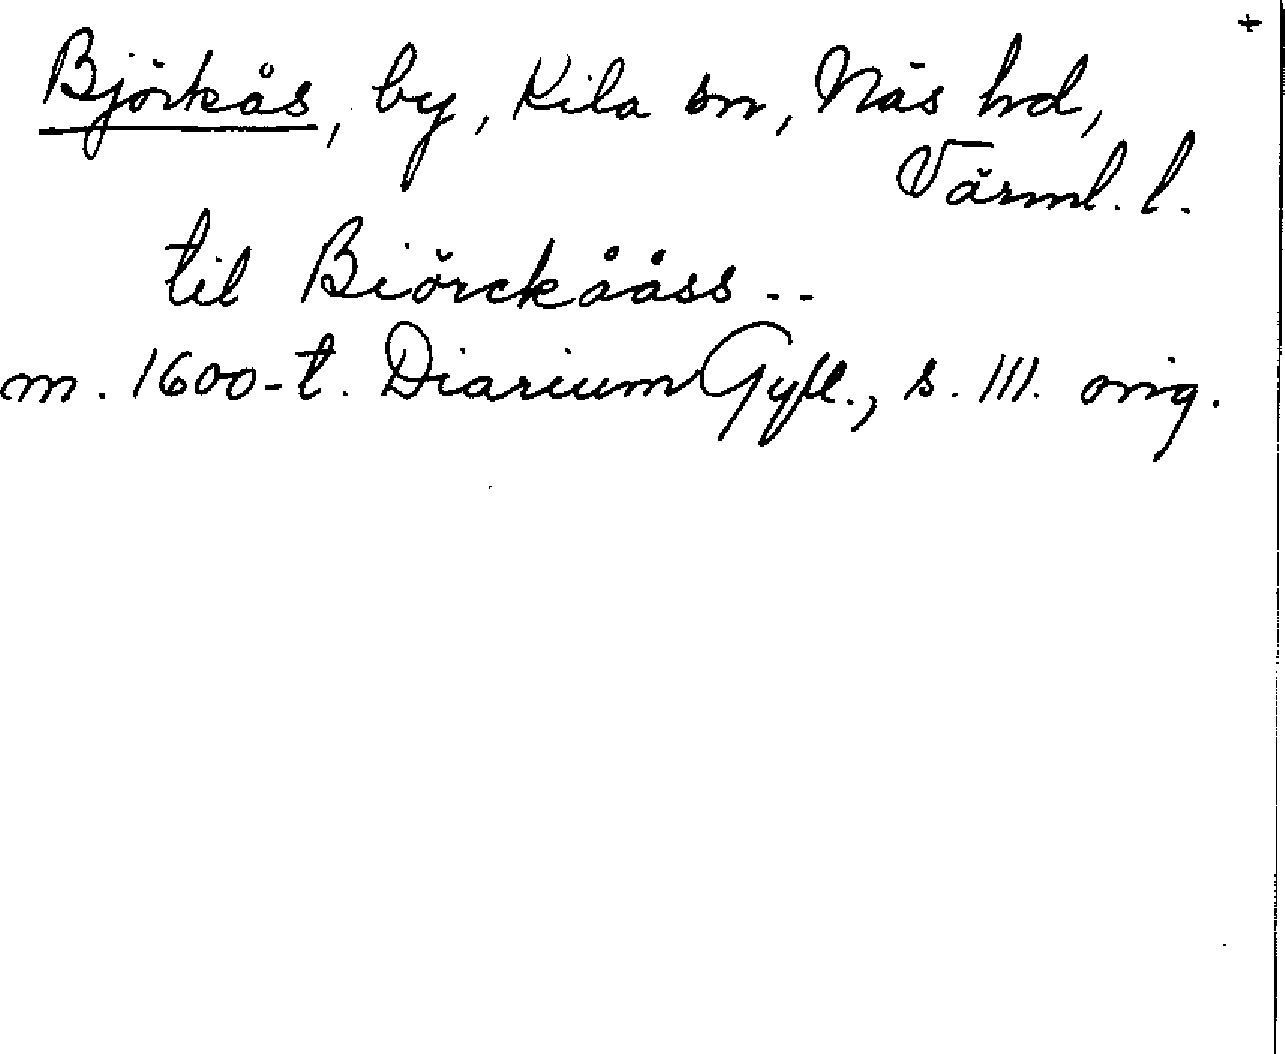 +
Björkås, by, Kila sn, Näs hd,
Värml. l.
til Biörckååss ..
m. 1600-t. Diarium Gyll., s. 111. orig.